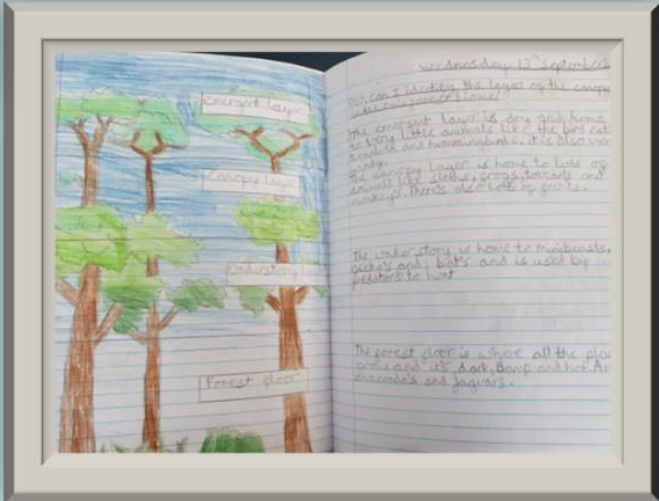 emergent layer
canopy layer
understory
Forest floor
Wednesday 13th September
can I identify the layers of the canopy
The emergent layer is dry and home
to very little animals like the bird eat
and hummingbirds. it is also
windy.
The canopy layer is home to lots of
animals like sloths, frogs, toucans and
monkeys. There's also lots of fruits.
The understory is home to minibeasts,
gecko's and bat's and is used by
preditors to hunt
The forest floor is where all the
and it's dark, damp and hot.
anaconda's and jaguars.